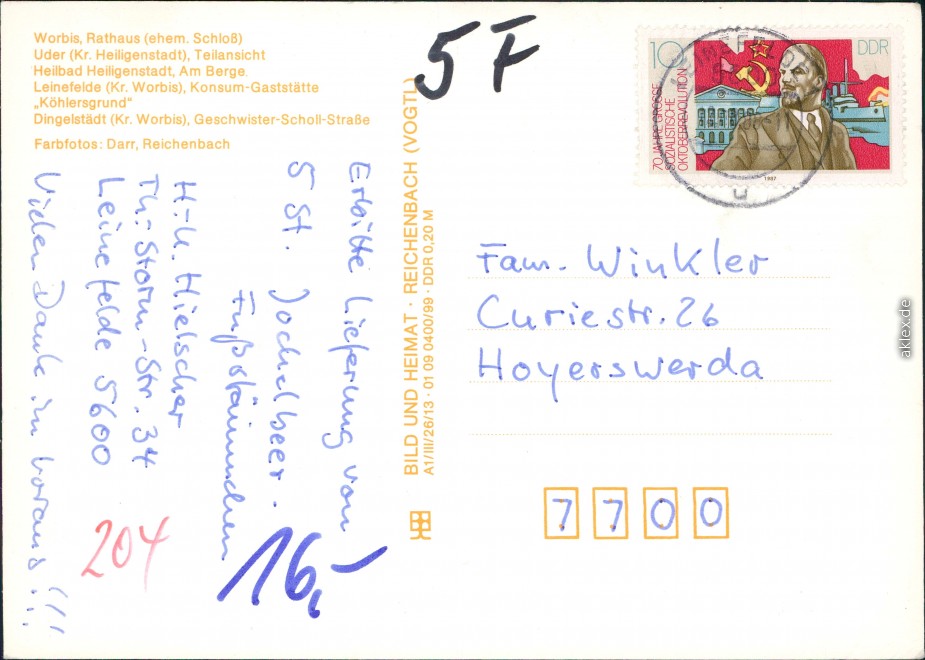 Worbis, Rathaus (ehem. Schloß)
Uder (Kr. Heiligenstadt), Teilansicht
Heilbad Heiligenstadt, Am Berge
Leinefelde (Kr. Worbis), Konsum-Gaststätte
„Köhlersgrund"
Dingelstädt (Kr. Worbis), Geschwister-Scholl-Straße
Farbfotos: Darr, Reichenbach
5 F
Erbitte Lieferung von
5 St. Jochelbeer-
Fußstämmchen
H.-U. Hielscher
Th.-Storm-Str. 34
Leinefelde 5600
Vielen Dank im voraus!!!
204
16,-
BILD UND HEIMAT · REICHENBACH (VOGTL)
A1/III/26/13 · 01 09 0400/99 · DDR 0,20 M
10
DDR
70 JAHRE GROSSE
SOZIALISTISCHE
OKTOBERREVOLUTION
1987
Fam. Winkler
Curiestr. 26
Hoyerswerda
7700
aklex.de